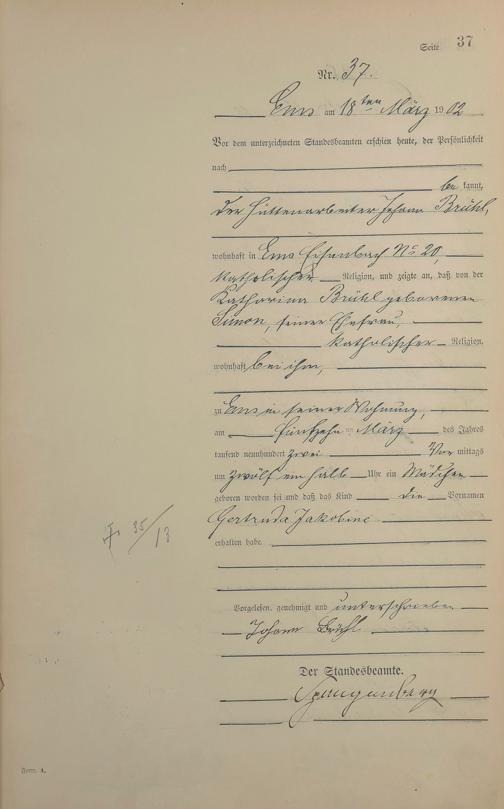 Seite 37
Nr. 37.
Ems am 18ten März 1902
Vor dem unterzeichneten Standesbeamten erschien heute, der Persönlichkeit
nach
be kannt,
der Hüttenarbeiter Johann Brühl,
wohnhaft in Ems Eisenbach No 20,
katholischer Religion, und zeigte an, daß von der
Katharina Brühl geborenen
Simon, seiner Ehefrau,
katholischer Religion,
wohnhaft bei ihm,
zu Ems in seiner Wohnung,
am fünfzehn ten März des Jahres
tausend neunhundert zwei Vor mittags
um zwölf ein halb Uhr ein Mädchen
geboren worden sei und daß das Kind die Vornamen
Gertruda Jakobine
erhalten habe
35/13
Vorgelesen, genehmigt und unterschrieben
Johann Brühl
Der Standesbeamte.
Spangenberg
Form. A.